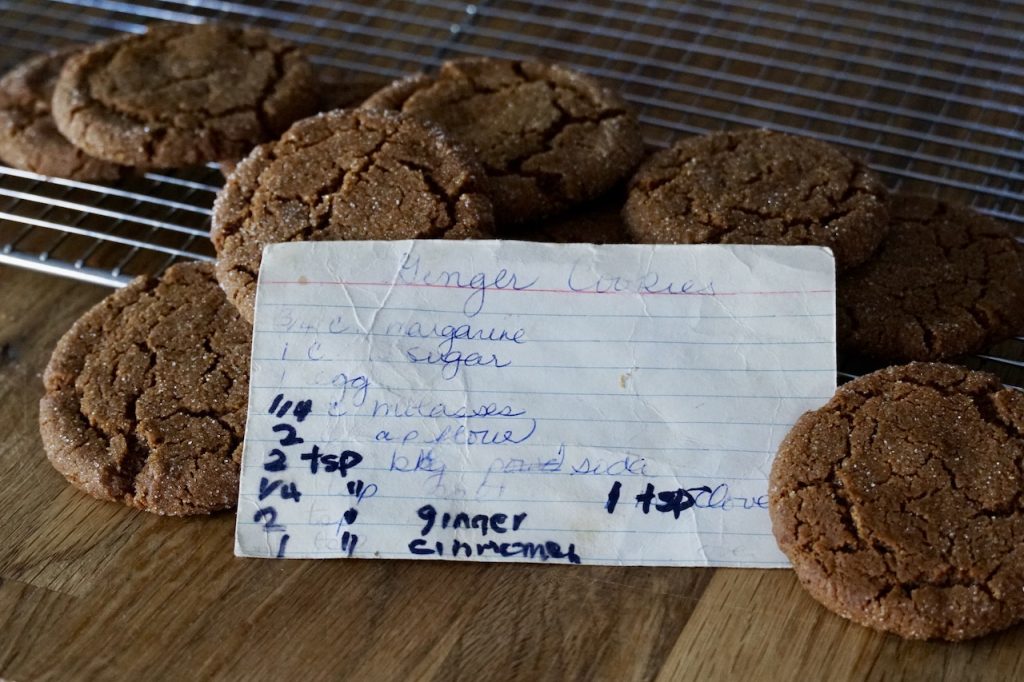 Ginger Cookies
3/4 c margarine
1 c sugar
1 egg
1/4 c molasses
2 ap flour
2 tsp bkg soda
1/4 " 1 tsp Clove
2 " ginger
1 " cinnomen